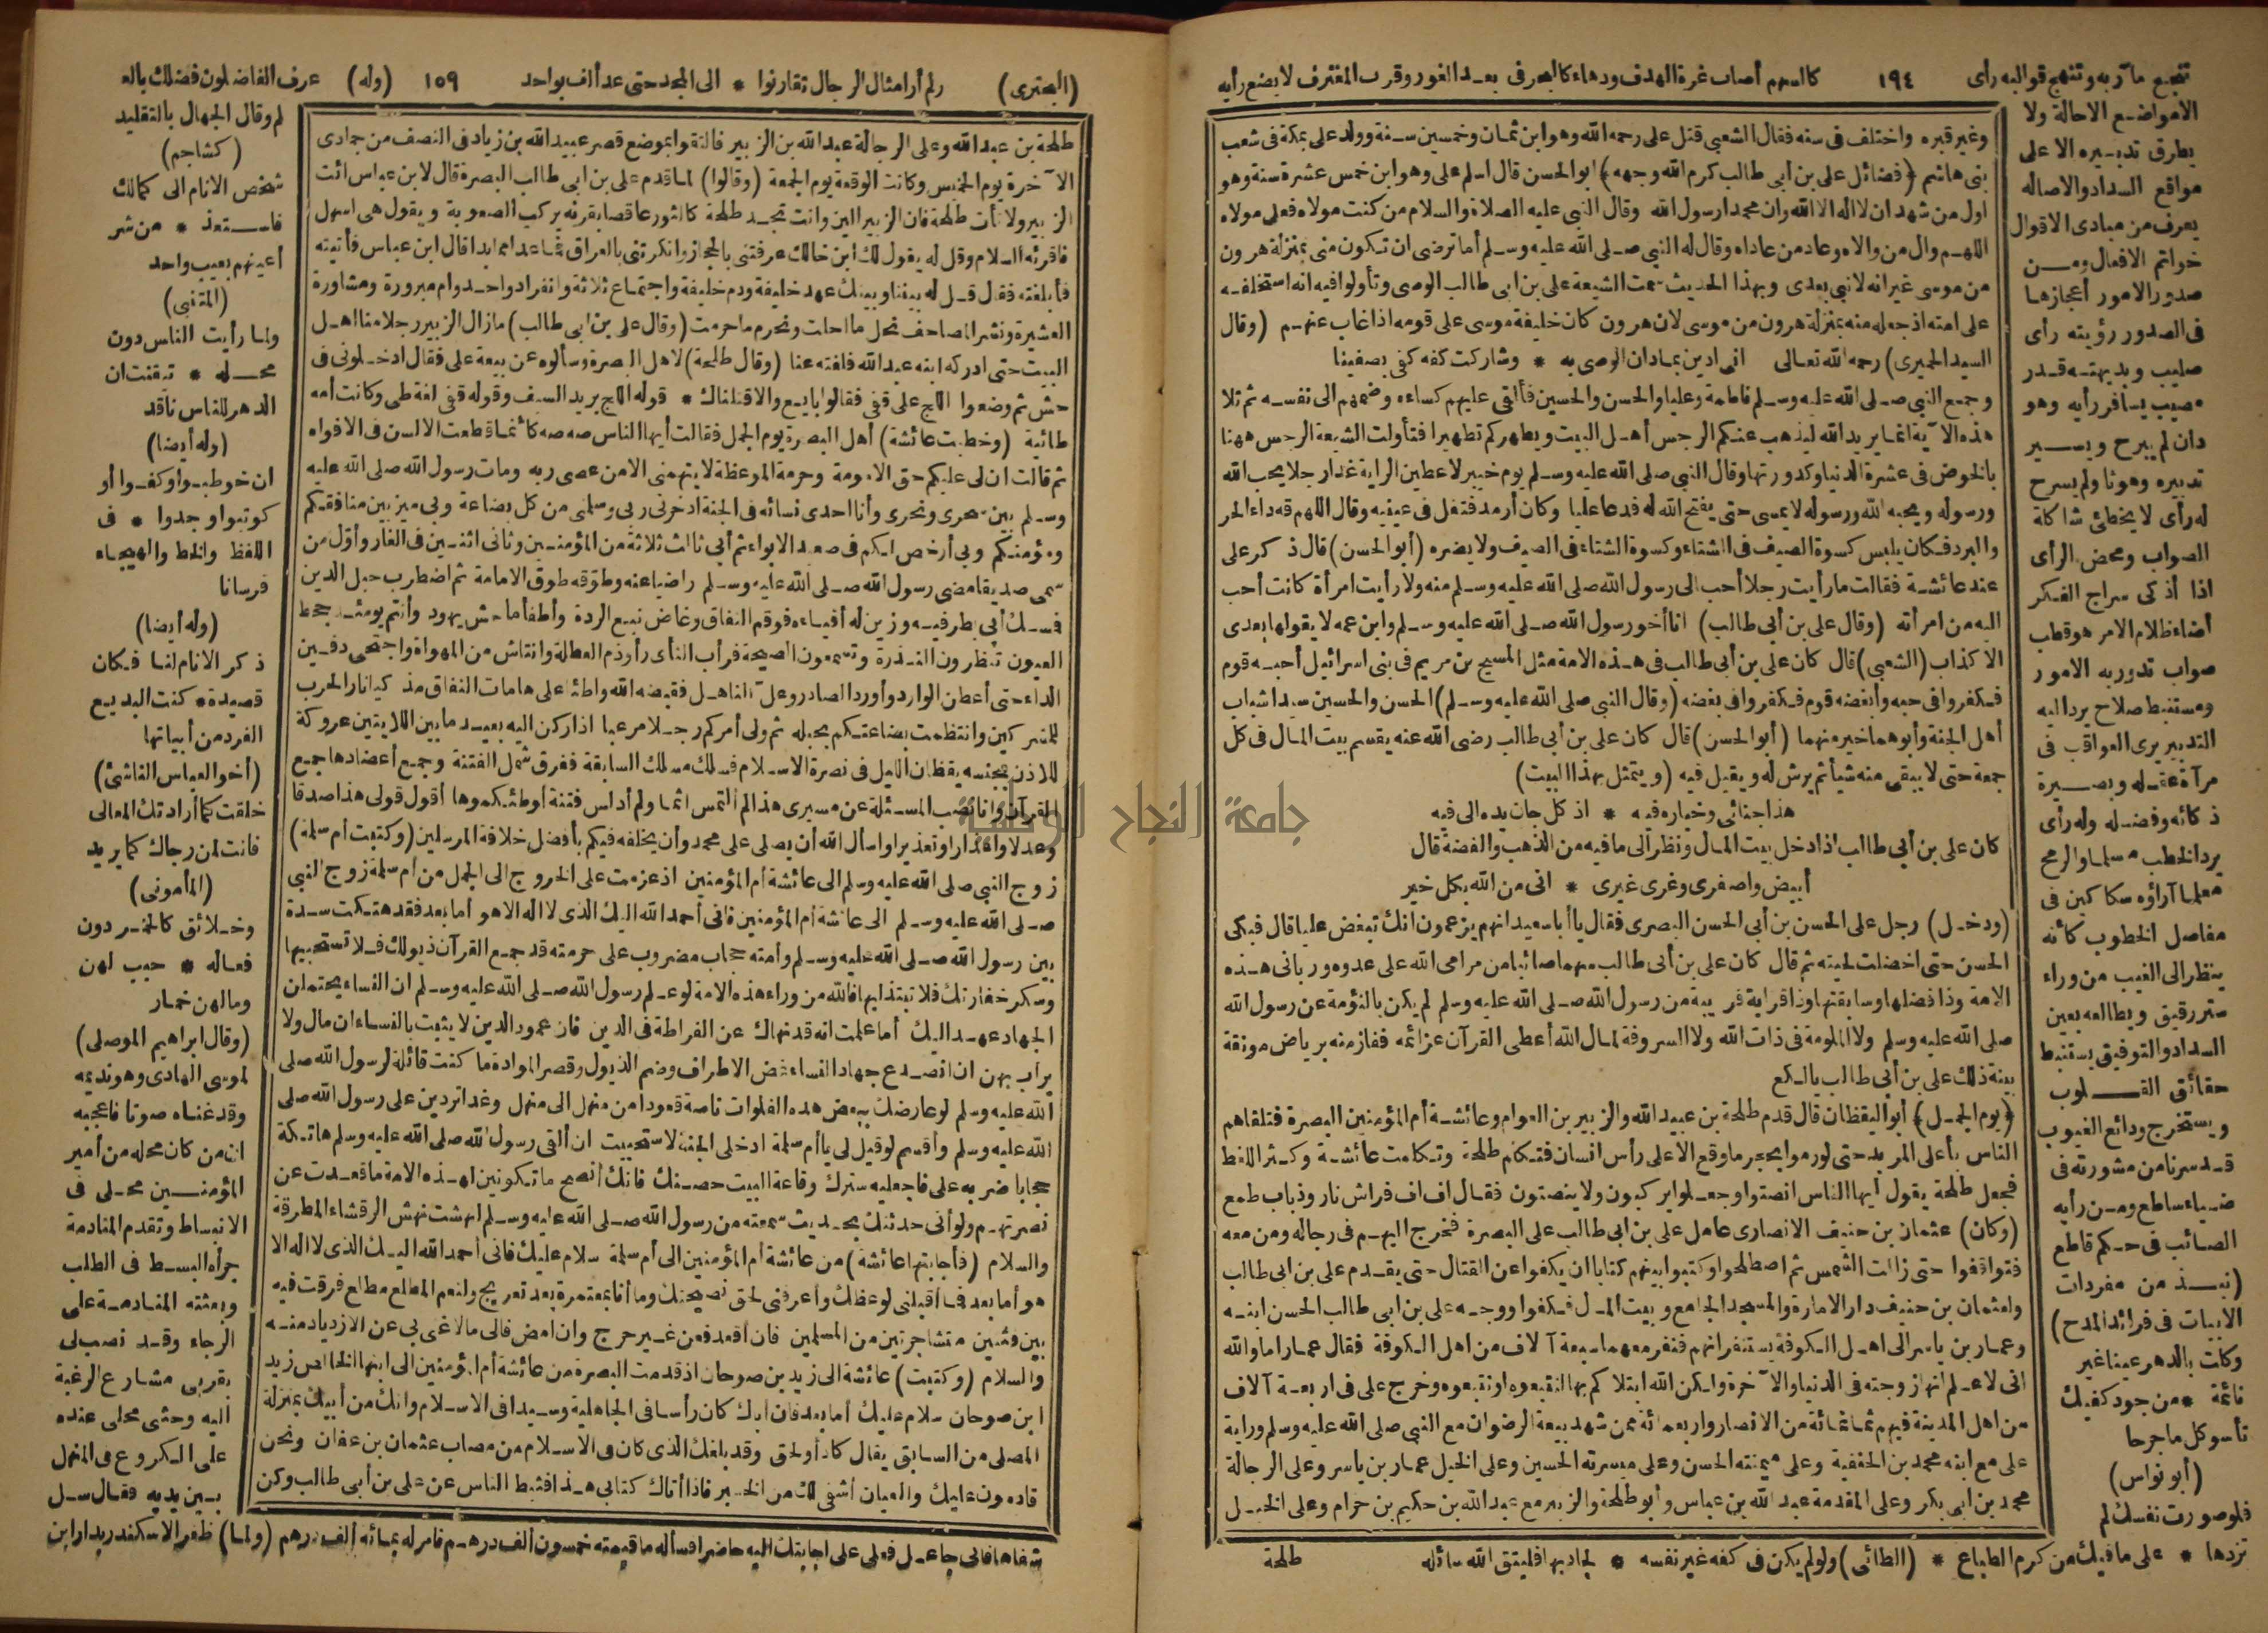 تتبع مآربه وتنهج قواليه رأى ١٩٤ كالسهم أصاب غرة الهدف ودهاء كالبحر فى بعد الغور وقرب المغترف لا يضع رأيه
الامواضع الاحالة ولا
يطرق تدبيره الا على
مواقع السداد والاصاله
يعرف من مبادى الاقوال
خواتم الافعال ومن
صدور الامور أعجازها
فى الصدور رؤيته رأى
صليب وبديهته قدر
مصيب يسافر رأيه وهو
دان لم يبرح ويسير
تدبيره وهوثاو لم يسرح
له رأى لا يخطئ شاكلة
الصواب ومحض الرأى
اذا أذكى سراج الفكر
أضاء ظلام الامر هو قطب
صواب تدور به الامور
ومستنبط صلاح يرد اليه
التدبير يرى العواقب فى
مرآة عقله وبصيرة
ذكائه وفضله وله رأى
يرد الخطب مسلما والرمح
معلما آراؤه سكاكين فى
مفاصل الخطوب كأنه
ينظر الى الغيب من وراء
ستر رقيق ويطالعه بعين
السداد والتوفيق يستنبط
حقائق القلوب
ويستخرج ودائع الغيوب
قد سرنا من مشورته فى
ضياء ساطع ومن رأيه
الصائب فى حكم قاطع
(نبذ من مفردات
الابيات فى فرائد المدح)
وكات بالدهر عينا غير
نائمة * من جود كفيك
تأسو كل ما جرحا
(أبو نواس)
فلو صورت نفسك لم
تزدها * على ما فيك من كرم الطباع * (الطائى) ولو لم يكن فى كفه غير نفسه * لجاد بها فليتق الله سائله
وغير قبره واختلف فى سنه فقال الشعبى قتل على رحمه الله وهو ابن ثمان وخمسين سنة وولد على بمكة فى شعب
بنى هاشم ﴿فضائل على بن أبى طالب كرم الله وجهه﴾ ابو الحسن قال اسلم على وهو ابن خمس عشرة سنة وهو
اول من شهد ان لا اله الا الله وان محمدا رسول الله وقال النبى عليه الصلاة والسلام من كنت مولاه فعلى مولاه
اللهم وال من والاه وعاد من عاداه وقال له النبى صلى الله عليه وسلم أما ترضى ان تكون منى بمنزلة هرون
من موسى غير انه لا نبى بعدى وبهذا الحديث سمت الشيعة على بن ابى طالب الوصى وتأولوا فيه انه استخلفه
على امته اذ جعله منه بمنزلة هرون من موسى لان هرون كان خليفة موسى على قومه اذا غاب عنهم (وقال
السيد الحميرى) رحمه الله تعالى انى ادين بمادان الوصى به * وشاركت كفه كفى بصفينا
وجمع النبى صلى الله عليه وسلم فاطمة وعليا والحسن والحسين فألقى عليهم كساءه وضمهم الى نفسه ثم تلا
هذه الآية انما يريد الله ليذهب عنكم الرجس أهل البيت ويطهركم تطهيرا فتأولت الشيعة الرجس ههنا
بالخوض فى عشرة الدنيا وكدورتها وقال النبى صلى الله عليه وسلم يوم خيبر لاعطين الراية غدا رجلا يحب الله
ورسوله ويحبه الله ورسوله لا يمسى حتى يفتح الله له فدعا عليا وكان أرمد فتفل فى عينيه وقال اللهم قه داء الحر
والبرد فكان يلبس كسوة الصيف فى الشتاء وكسوة الشتاء فى الصيف ولا يضره (أبو الحسن) قال ذكر على
عند عائشة فقالت ما رأيت رجلا أحب الى رسول الله صلى الله عليه وسلم منه ولا رأيت امرأة كانت أحب
اليه من امرأته (وقال على بن أبى طالب) انا أخو رسول الله صلى الله عليه وسلم وابن عمه لا يقولها بعدى
الا كذاب (الشعبى) قال كان على بن أبى طالب فى هذه الامة مثل المسيح بن مريم فى بنى اسرائيل أحبه قوم
فكفروا فى حبه وأبغضه قوم فكفروا فى بغضه (وقال النبى صلى الله عليه وسلم) الحسن والحسين سيدا شباب
أهل الجنة وأبوهما خير منهما (أبو الحسن) قال كان على بن أبى طالب رضى الله عنه يقسم بيت المال فى كل
جمعة حتى لا يبقى منه شيأ ثم يرش له ويقيل فيه (ويتمثل بهذا البيت)
هذا جنائى وخياره فيه * اذ كل جان يده الى فيه
كان على بن أبى طالب اذا دخل بيت المال ونظر الى ما فيه من الذهب والفضة قال
أبيضى واصفرى وغرى غيرى * انى من الله بكل خير
(ودخل) رجل على الحسن بن أبى الحسن البصرى فقال يا أبا سعيد انهم يزعمون انك تبغض عليا قال فبكى
الحسن حتى اخضلت لحيته ثم قال كان على بن أبى طالب سهما صائبا من مرامى الله على عدوه وربانى هذه
الامة وذا فضلها وسابقتها وذا قرابة قريبة من رسول الله صلى الله عليه وسلم لم يكن بالنؤمة عن رسول الله
صلى الله عليه وسلم ولا الملومة فى ذات الله ولا السروقة لمال الله أعطى القرآن عزائمه ففاز منه برياض مونقة
بينة ذلك على بن أبى طالب يالكع
﴿يوم الجمل﴾ أبو اليقظان قال قدم طلحة بن عبيد الله والزبير بن العوام وعائشة أم المؤمنين البصرة فتلقاهم
الناس بأعلى المربد حتى لو رموا بحجر ما وقع الا على رأس انسان فتكلم طلحة وتكلمت عائشة وكثر اللغط
فجعل طلحة يقول أيها الناس انصتوا وجعلوا يركبون ولا ينصتون فقال اف اف فراش نار وذباب طمع
(وكان) عثمان بن حنيف الانصارى عامل على بن ابى طالب على البصرة فخرج اليهم فى رجاله ومن معه
فتواقفوا حتى زالت الشمس ثم اصطلحوا وكتبوا بينهم كتابا ان يكفوا عن القتال حتى يقدم على بن ابى طالب
ولعثمان بن حنيف دار الامارة والمسجد الجامع وبيت المال فكفوا ووجه على بن ابى طالب الحسن ابنه
وعمار بن ياسر الى اهل الكوفة يستنفرانهم فنفر معهما سبعة آلاف من اهل الكوفة فقال عمار اما والله
انى لاعلم انها زوجته فى الدنيا والآخرة ولكن الله ابتلاكم بها لتتبعوه او تتبعوها وخرج على فى اربعة آلاف
من اهل المدينة فيهم ثمانمائة من الانصار واربعمائة ممن شهد بيعة الرضوان مع النبى صلى الله عليه وسلم وراية
على مع ابنه محمد بن الحنفية وعلى ميمنته الحسن وعلى ميسرته الحسين وعلى الخيل عمار بن ياسر وعلى الرجالة
محمد بن ابى بكر وعلى المقدمة عبد الله بن عباس وأبو طلحة والزبير مع عبد الله بن حكيم بن حزام وعلى الخيل
طلحة
(البحترى) ولم أر أمثال الرجال تقارنوا * الى المجد حتى عد ألف بواحد ١٥٩ (وله) عرف الفاضلون فضلك بالعـ
طلحة بن عبد الله وعلى الرجالة عبد الله بن الزبير فالتقوا بموضع قصر عبيد الله بن زياد فى النصف من جمادى
الآخرة يوم الخميس وكانت الوقعة يوم الجمعة (وقالوا) لما قدم على بن ابى طالب البصرة قال لابن عباس ائت
الزبير ولا تأت طلحة فان الزبير ألين وانت تجد طلحة كالثور عاقصا بقرنه يركب الصعوبة ويقول هى اسهل
فاقرئه السلام وقل له يقول لك ابن خالك عرفتنى بالحجاز وانكرتنى بالعراق فما عدا مما بدا قال ابن عباس فأتيته
فأبلغته فقال قل له بيننا وبينك عهد خليفة ودم خليفة واجتماع ثلاثة وانفراد واحد وام مبرورة ومشاورة
العشيرة ونشر المصاحف نحل ما احلت ونحرم ما حرمت (وقال على بن ابى طالب) ما زال الزبير رجلا منا اهل
البيت حتى ادركه ابنه عبد الله فلفته عنا (وقال طلحة) لاهل البصرة وسألوه عن بيعة على فقال ادخلونى فى
حش ثم وضعوا اللج على قفى فقالوا بايع والا قتلناك * قوله اللج يريد السيف وقوله قفى لغة طى وكانت أمه
طائية (وخطبت عائشة) أهل البصرة يوم الجمل فقالت أيها الناس صه صه كأنما قطعت الالسن فى الافواه
ثم قالت ان لى عليكم حق الامومة وحرمة الموعظة لا يتهمنى الا من عصى ربه ومات رسول الله صلى الله عليه
وسلم بين سحرى ونحرى وأنا احدى نسائه فى الجنة ادخرنى ربى وسلمنى من كل بضاعة وبى ميز بين منافقكم
ومؤمنكم وبى أرخص لكم فى صعيد الابواء ثم أبى ثالث ثلاثة من المؤمنين وثانى اثنين فى الغار وأول من
سمى صديقا مضى رسول الله صلى الله عليه وسلم راضيا عنه وطوقه طوق الامامة ثم اضطرب حبل الدين
فمسك أبى بطرفيه ورتق لكم أفياءه فوقم النفاق وغاض نبع الردة وأطفأ ما حش يهود وأنتم يومئذ جحظ
العيون تنظرون الغدرة وتسمعون الصيحة فرأب الثأى وأوذم العطلة وانتاش من المهواة واجتحى دفين
الداء حتى أعطن الوارد وأورد الصادر وعل الناهل فقبضه الله واطئا على هامات النفاق مذكيا نار الحرب
للمشركين وانتظمت بضاعتكم بحبله ثم ولى أمركم رجلا مرعيا اذا ركن اليه بعيد ما بين اللابتين عروكة
للاذن بجنبه يقظان الليل فى نصرة الاسلام فسلك مسلك السابقة ففرق شمل الفتنة وجمع أعضاد ما جمع
القرآن وانا نصب المسئلة عن مسيرى هذا لم ألتمس اثما ولم أدلس فتنة أوطئكموها أقول قولى هذا صدقا
وعدلا واعذارا وتعذيرا واسأل الله أن يصلى على محمد وأن يخلفه فيكم بأفضل خلافة المرسلين (وكتبت أم سلمة)
زوج النبى صلى الله عليه وسلم الى عائشة أم المؤمنين اذ عزمت على الخروج الى الجمل من أم سلمة زوج النبى
صلى الله عليه وسلم الى عائشة أم المؤمنين فانى أحمد الله اليك الذى لا اله الا هو أما بعد فقد هتكت سدة
بين رسول الله صلى الله عليه وسلم وأمته حجاب مضروب على حرمته قد جمع القرآن ذيولك فلا تسحبيها
وسكر خفارتك فلا تبتذليها فالله من وراء هذه الامة لو علم رسول الله صلى الله عليه وسلم ان النساء يحتملن
الجهاد عهد اليك أما علمت انه قد نهاك عن الفراطة فى الدين فان عمود الدين لا يثبت بالنساء ان مال ولا
يرأب بهن ان انصدع جهاد النساء غض الاطراف وضم الذيول وقصر الموادة ما كنت قائلة لرسول الله صلى
الله عليه وسلم لو عارضك ببعض هذه الفلوات ناصة قعودا من منهل الى منهل وغدا تردين على رسول الله صلى
الله عليه وسلم وأقسم لو قيل لى يا أم سلمة ادخلى الجنة لاستحييت ان ألقى رسول الله صلى الله عليه وسلم هاتكة
حجابا ضربه على فاجعليه سترك وقاعة البيت حصنك فانك أنصح ما تكونين لهذه الامة ما قعدت عن
نصرتهم ولو أنى حدثتك بحديث سمعته من رسول الله صلى الله عليه وسلم لنهشت نهش الرقشاء المطرقة
والسلام (فأجابتها عائشة) من عائشة أم المؤمنين الى أم سلمة سلام عليك فانى أحمد الله اليك الذى لا اله الا
هو أما بعد فما أقبلنى لوعظك وأعرفنى لحق نصيحتك وما أنا بمعتمرة بعد تعريج ولنعم المطلع مطلع فرقت فيه
بين فئتين متشاجرتين من المسلمين فان أقعد فعن غير حرج وان امض فالى ما لا غنى بى عن الازدياد منه
والسلام (وكتبت) عائشة الى زيد بن صوحان اذ قدمت البصرة من عائشة أم المؤمنين الى ابنها الخالص زيد
ابن صوحان سلام عليك أما بعد فان أباك كان رأسا فى الجاهلية وسيدا فى الاسلام وانك من أبيك بمنزلة
المصلى من السابق يقال كاد أو لحق وقد بلغك الذى كان فى الاسلام من مصاب عثمان بن عفان ونحن
قادمون عليك والعيان أشفى لك من الخبر فاذا أتاك كتابى هذا فثبط الناس عن على بن أبى طالب وكن
لم وقال الجهال بالتقليد
(كشاجم)
شخص الانام الى كمالك
فاستعذ * من شر
أعينهم بعيب واحد
(المتنبى)
ولما رأيت الناس دون
محله * تيقنت ان
الدهر للناس ناقد
(وله أيضا)
ان خوطبوا وكفوا أو
كوتبوا وجدوا * فى
اللفظ والخط والهيجاء
فرسانا
(وله أيضا)
ذكر الانام لنا فكان
قصيدة * كنت البديع
الفرد من أبياتها
(أخو العباس الناشئ)
خلقت كما أرادتك المعالى
فانت لمن رجاك كما يريد
(المأمونى)
وخلائق كالخمر دون
فعاله * حبب لهن
وما لهن خمار
(وقال ابراهيم الموصلى)
لموسى الهادى وهو نديمه
وقد غناه صوتا فاعجبه
ان من كان محله من أمير
المؤمنين محلى فى
الانبساط وتقدم المنادمة
جرأه البسط فى الطلب
وبعثته المنادمة على
الرجاء وقد نصب لى
بقربى مشارع الرغبة
اليه وحثى محلى عنده
على الكروع فى المنهل
بين يديه فقال سل
شفاها فانى جاعل فعلى على اجابتك اليه حاضرا فسأله ما قيمته خمسون ألف درهم فامر له بمائة ألف درهم (ولما) ظفر الاسكندر بدار ابن
جامعة النجاح الوطنية